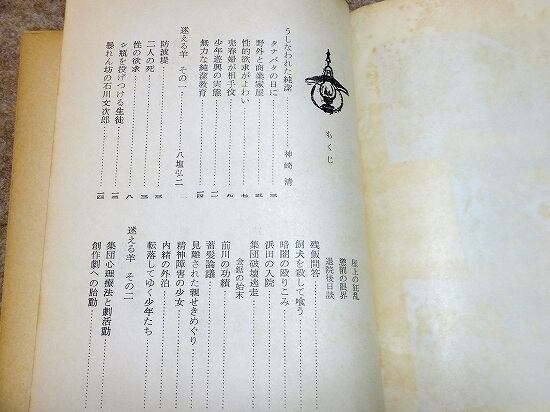 もくじ
うしなわれた純潔……………神崎 清
タナバタの日に
野外と商業家屋
性的欲求がよわい
売春婦が相手役
少年遊興の実態
無力な純潔教育
迷える羊 その一……………八塩弘二
防波堤
二人の死
性の欲求
瓶を投げつける生徒
暴れん坊の石川文次郎
屋上の狂乱
懲罰の限界
退院後日誌
残飯問答
飼犬を殺して喰う
暗闇の殴りこみ
浜田の入院
集団破壊逃走
金鎚の始末
前川の功績
蓄髪論議
見離された親せきめぐり
精神障害の少女
内緒の外泊
転落してゆく少年たち
迷える羊 その二
集団心理療法と劇活動
創作劇への胎動